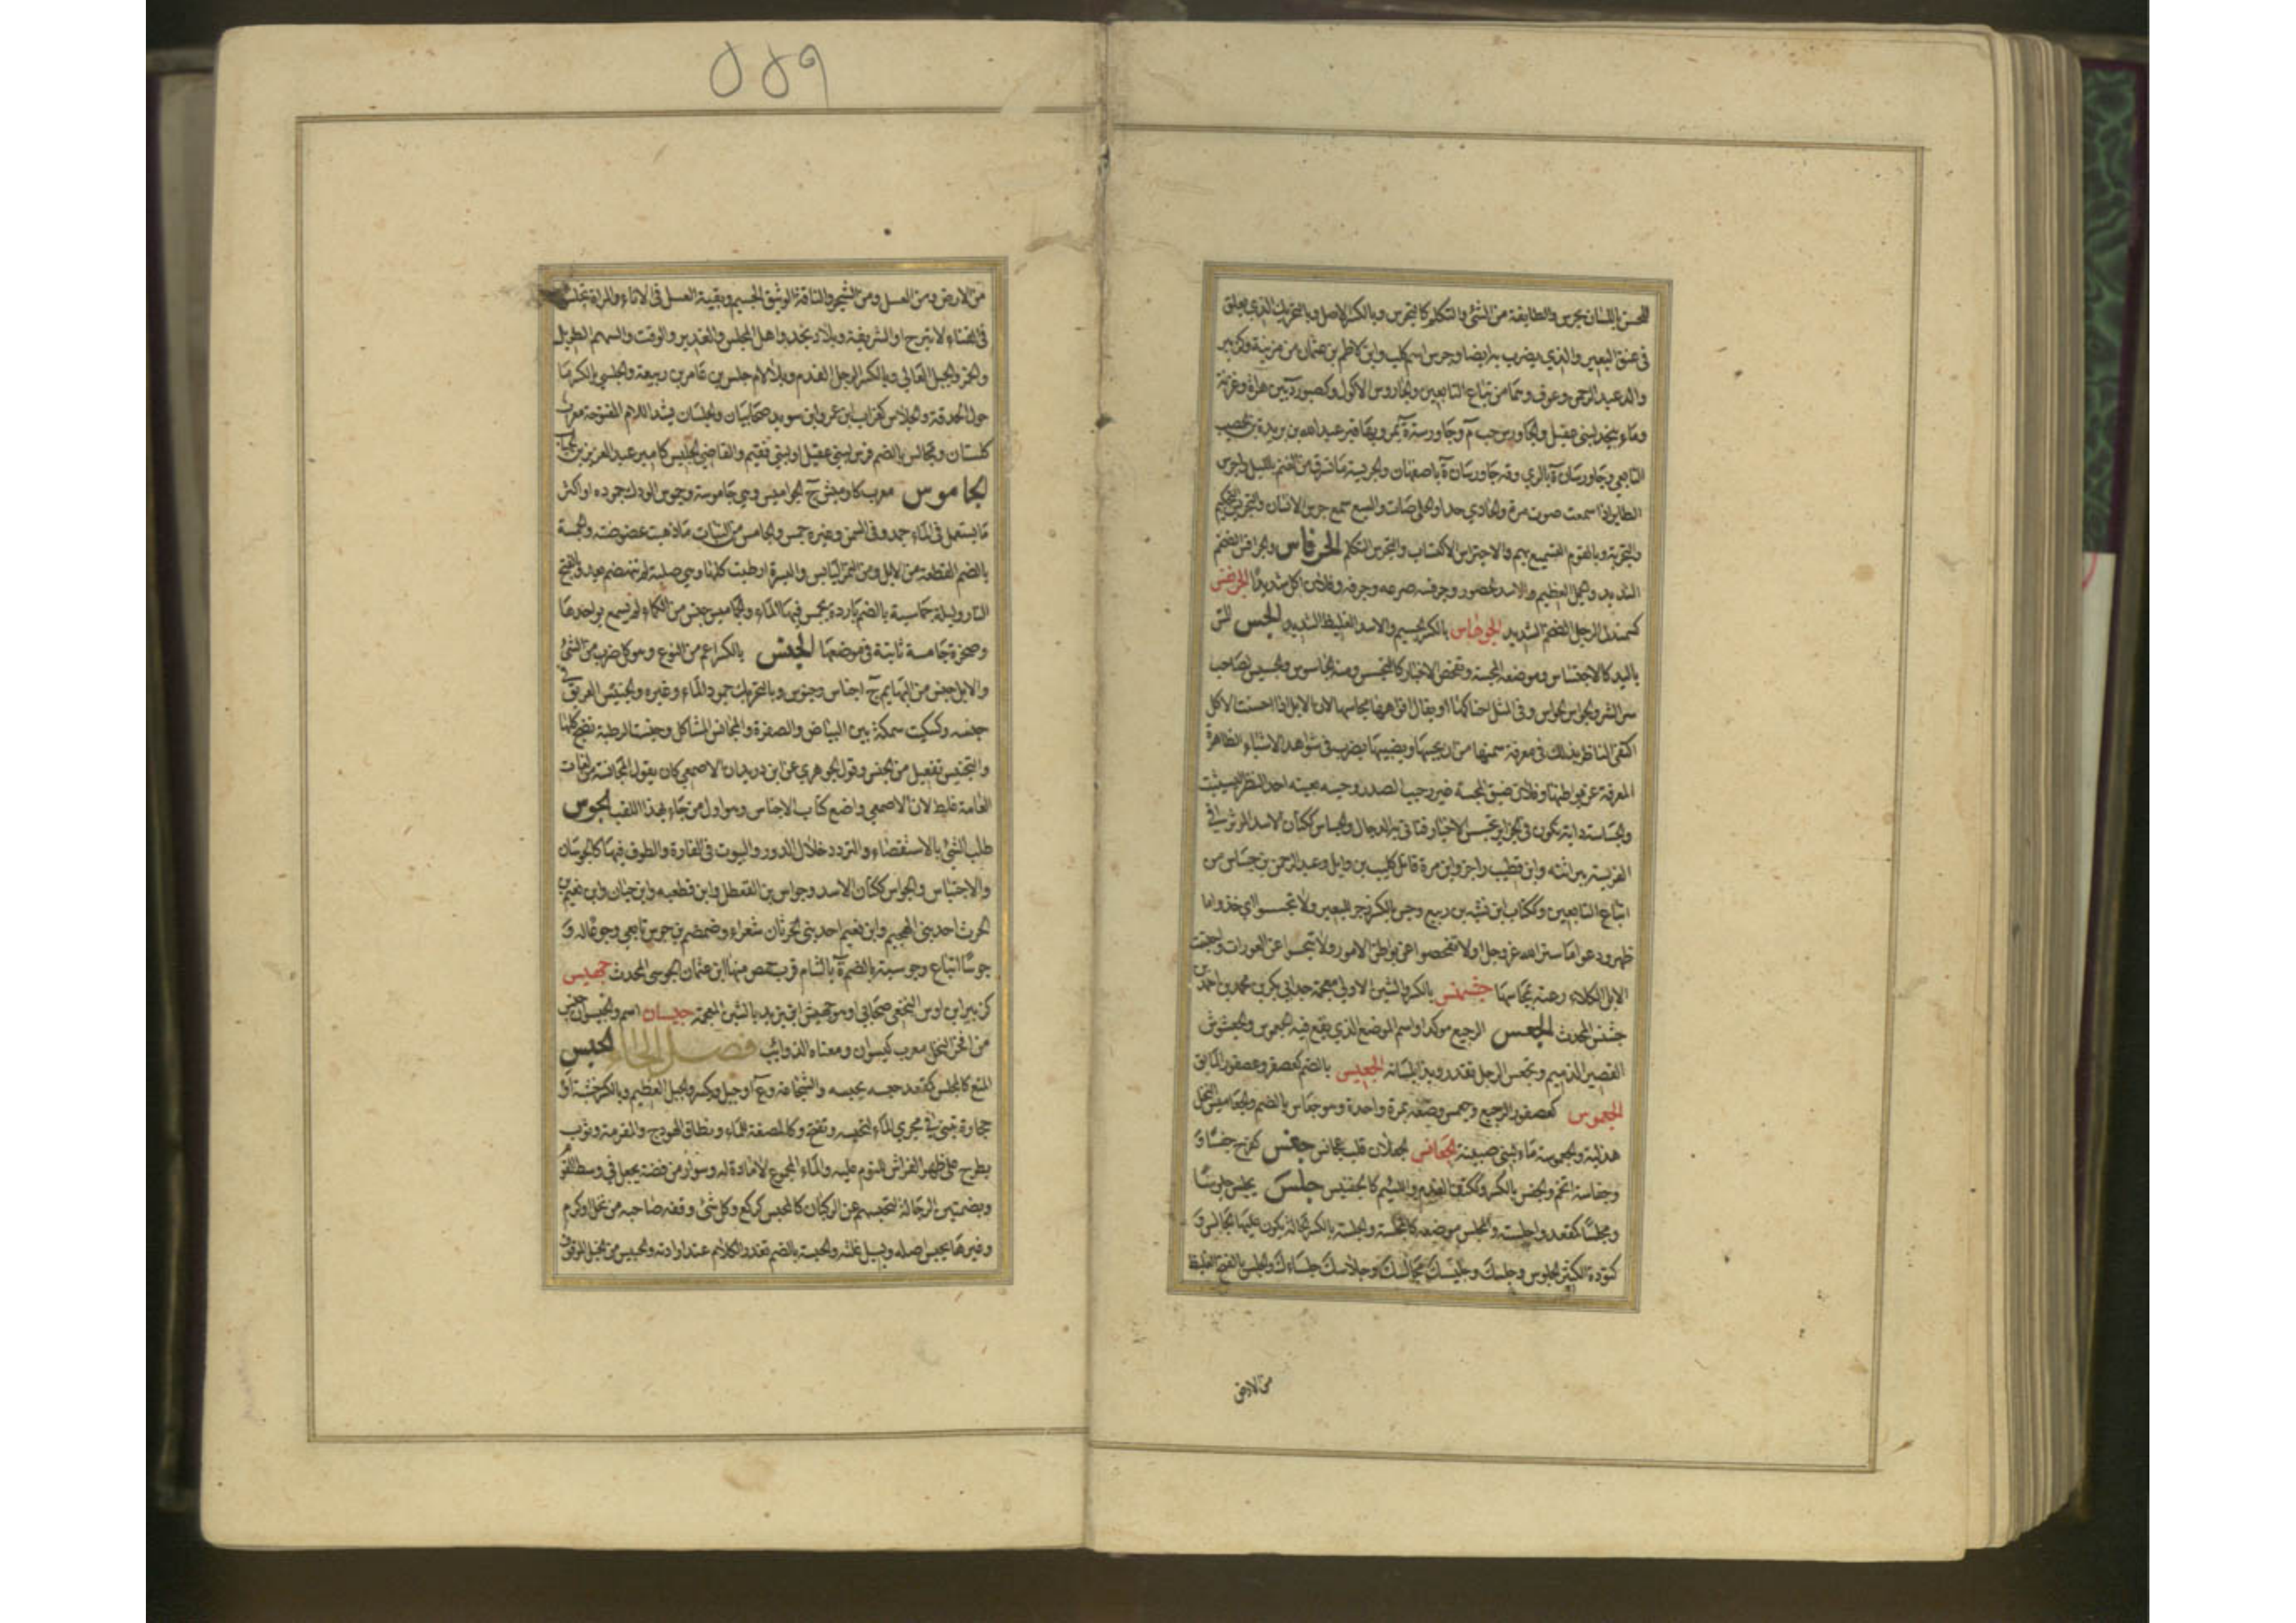 اللحس باللسان يجرس والطايفة من الشئ والتكلم كالتجرس وبالكسر الاصل وبالتحريك الذي يعلق
في عنق البعير والذي يضرب به ايضا وجرس اسم كلب وابن لاطم بن عثمان من مزينة وكزبير
والد عبد الرحمن وعوف وهما من تباع التابعين والجاروس الاكول وكصبور ة بين هراة وغزنة
وماء بنجد لبني عقيل والجاورس حب م وجاورسة ة بمرو بها قبر عبد الله بن بريدة بن الحصيب
التابعي وجاورسان ة بالري وقه جاورسان ة باصفهان والجريسة ما تسرق من الغنم بالليل واجرس
الطاير اذا سمعت صوت مره والحادي حدا والحلي صات والسبع سمع جرس الانسان والتجريس التحكيم
والتجربة وبالقوم التسميع بهم والاجتراس الاكتساب والتجرس التكلم الجرفاس والجرافس الضخم
الشديد والجمل العظيم والاسد الهصور وجرفسه صرعه وجرفه وفلان اكل شديدا الجرهس
كسمندل الرجل الضخم الشديد الجرهاس بالكسر الجسيم والاسد الغليظ الشديد الجس المس
باليد كالاجتساس وموضعه المجسة وتفحص الاخبار كالتجسس ومنه الجاسوس والجسيس لصاحب
سر الشر والجواس الحواس وفي المثل احناكها او يقال افواهها مجاسها لان الابل اذا احسنت الاكل
اكتفى الناظر بذلك في معرفة سمنها من ان يجسها ويضبثها يضرب في شواهد الاشياء الظاهرة
المعرفة عن بواطنها وفلان ضيق المجسة غير رحيب الصدر وجسه بعينه احد النظر اليه ليستثبت
والجساسة دابة تكون في الجزاير تجس الاخبار فتاتي بها الدجال والجساس ككتان الاسد المؤثر في
الفريسة ببراثنه وابن قطيب راجز وابن مرة قاتل كليب بن وايل وعبد الرحمن بن جساس من
اتباع التابعين وككتاب ابن نشبة بن ربيع وجس بالكسر زجر للبعير ولا تجسسوا اي خذوا ما
ظهر ودعوا ما ستر الله عز وجل او لا تفحصوا عن بواطن الامور ولا تبحثوا عن العورات واجتست
الابل الكلاء رعته بمجاسها جشنس بالكسر والشين الاولى معجمة جد ابي بكر بن محمد بن احمد بن
جشنس المحدث الجعس الرجيع مولد او اسم الموضع الذي يقع فيه الجعموس والجعسوس
القصير الدميم وتجعس الرجل تعذر وبذا بلسانه الجعبس بالضم كعصفر وعصفور المايق
الجعموس كعصفور الرجيع وجعمس وضعه بمرة واحدة وهو جعامس بالضم والجعاميس النخل
هذلية والجعموسة ماء لبني ضبينة الجعانس الجعلان قلب عجانس جفس كفرح جفسا و
وجفاسة اتخم والجفس بالكسر وككتف الضعيف الفدم واللئيم كالجفيس جلس يجلس جلوسا
ومجلسا كمقعد واجلسته والمجلس موضعه كالمجلسة والجلسة بالكسر الحالة يكون عليها الجالس و
كتؤدة الكثير الجلوس وجلسك وجليسك مجالسك وجلاسك جلساءك والجلس بالفتح الغليظ
من الارض
٥٥٩
من الارض ومن العسل ومن الشجر والناقة الوثيق الجسيم وبقية العسل في الاناء والمراة تجلس
في الفناء لا تبرح او الشريفة وبلاد نجد واهل المجلس والغدير والوقت والسهم الطويل
والخمر والجبل العالي وبالكسر الرجل الفدم وبلا لام جلس بن عامر بن ربيعة والجلسي بالكسر ما
حول الحدقة والجلاس كغراب ابن عمرو وابن سويد صحابيان وجلسان بشد اللام المفتوحة معرب
كلستان ومجالس بالضم فرس لبني عقيل او لبني فقيم والقاضي الجليس كامير عبد العزيز بن الحباب
الجاموس معرب كاوميش ج الجواميس وهي جاموسة وجموس الودك جموده او اكثر
ما يستعمل في الماء جمد وفي السمن وغيره جمس والجامس من النبات ما ذهبت غضوضته والجمسة
بالضم القطعة من الابل ومن التمر اليابس والبسرة ارطبت كلها وهي صلبة لم تنهضم بعد وبالفتح
النار وليلة جماسية بالضم باردة يجمس فيها الماء والجماميس جنس من الكماة لم يسمع بواحدها
وصخرة جامسة ثابتة في موضعها الجنس بالكسر اعم من النوع وهو كل ضرب من الشئ
والابل جنس من البهايم ج اجناس وجنوس وبالتحريك جمود الماء وغيره والجنيس العريق في
جنسه وكسكيت سمكة بين البياض والصفرة والمجانس المشاكل وجنست الرطبة نضج كلها
والتجنيس تفعيل من الجنس وقول الجوهري عن ابن دريد ان الاصمعي كان يقول المجانسة من لغات
العامة غلط لان الاصمعي واضع كتاب الاجناس وهو اول من جاء بهذا اللقب الجوس
طلب الشئ بالاستقصاء والتردد خلال الدور والبيوت في الغارة والطوف فيها كالجوسان
والاجتياس والجواس ككتان الاسد وجواس بن القعطل وابن قطبة وابن حيان وابن نعيم بن
الحرث احد بني الهجيم وابن نعيم احد بني حرثان شعراء وضمضم بن جوس تابعي وجوعا له و
جوسا اتباع وجوسية بالضم ة بالشام قرب حمص منها ابن عثمان الجوسي المحدث جهيس
كزبير ابن اوس النخعي صحابي او هو جهيش ابن يزيد بالشين المعجمة جيسان اسم والجيسوان جنس
من افخر النخل معرب كيسوان ومعناه الذوايب فصل الحاء الحبس
المنع كالمحبس كمقعد حبسه يحبسه والشجاعة وع او جبل ويكسر والجبل العظيم وبالكسر خشبة او
حجارة تبنى في مجرى الماء لتحبسه وتفتح وكالمصنعة للماء ونطاق الهودج والمقرمة وثوب
يطرح على ظهر الفراش للنوم عليه والماء المجموع لا مادة له وسوار من فضة يجعل في وسط القرام
وبضمتين الرجالة لتحبسهم عن الركبان كالحبس كركع وكل شئ وقفه صاحبه من نخل او كرم
وغيرها يحبس اصله ويسبل غلته والحبسة بالضم تعذر الكلام عند ارادته والحبيس من الخيل الموقوف